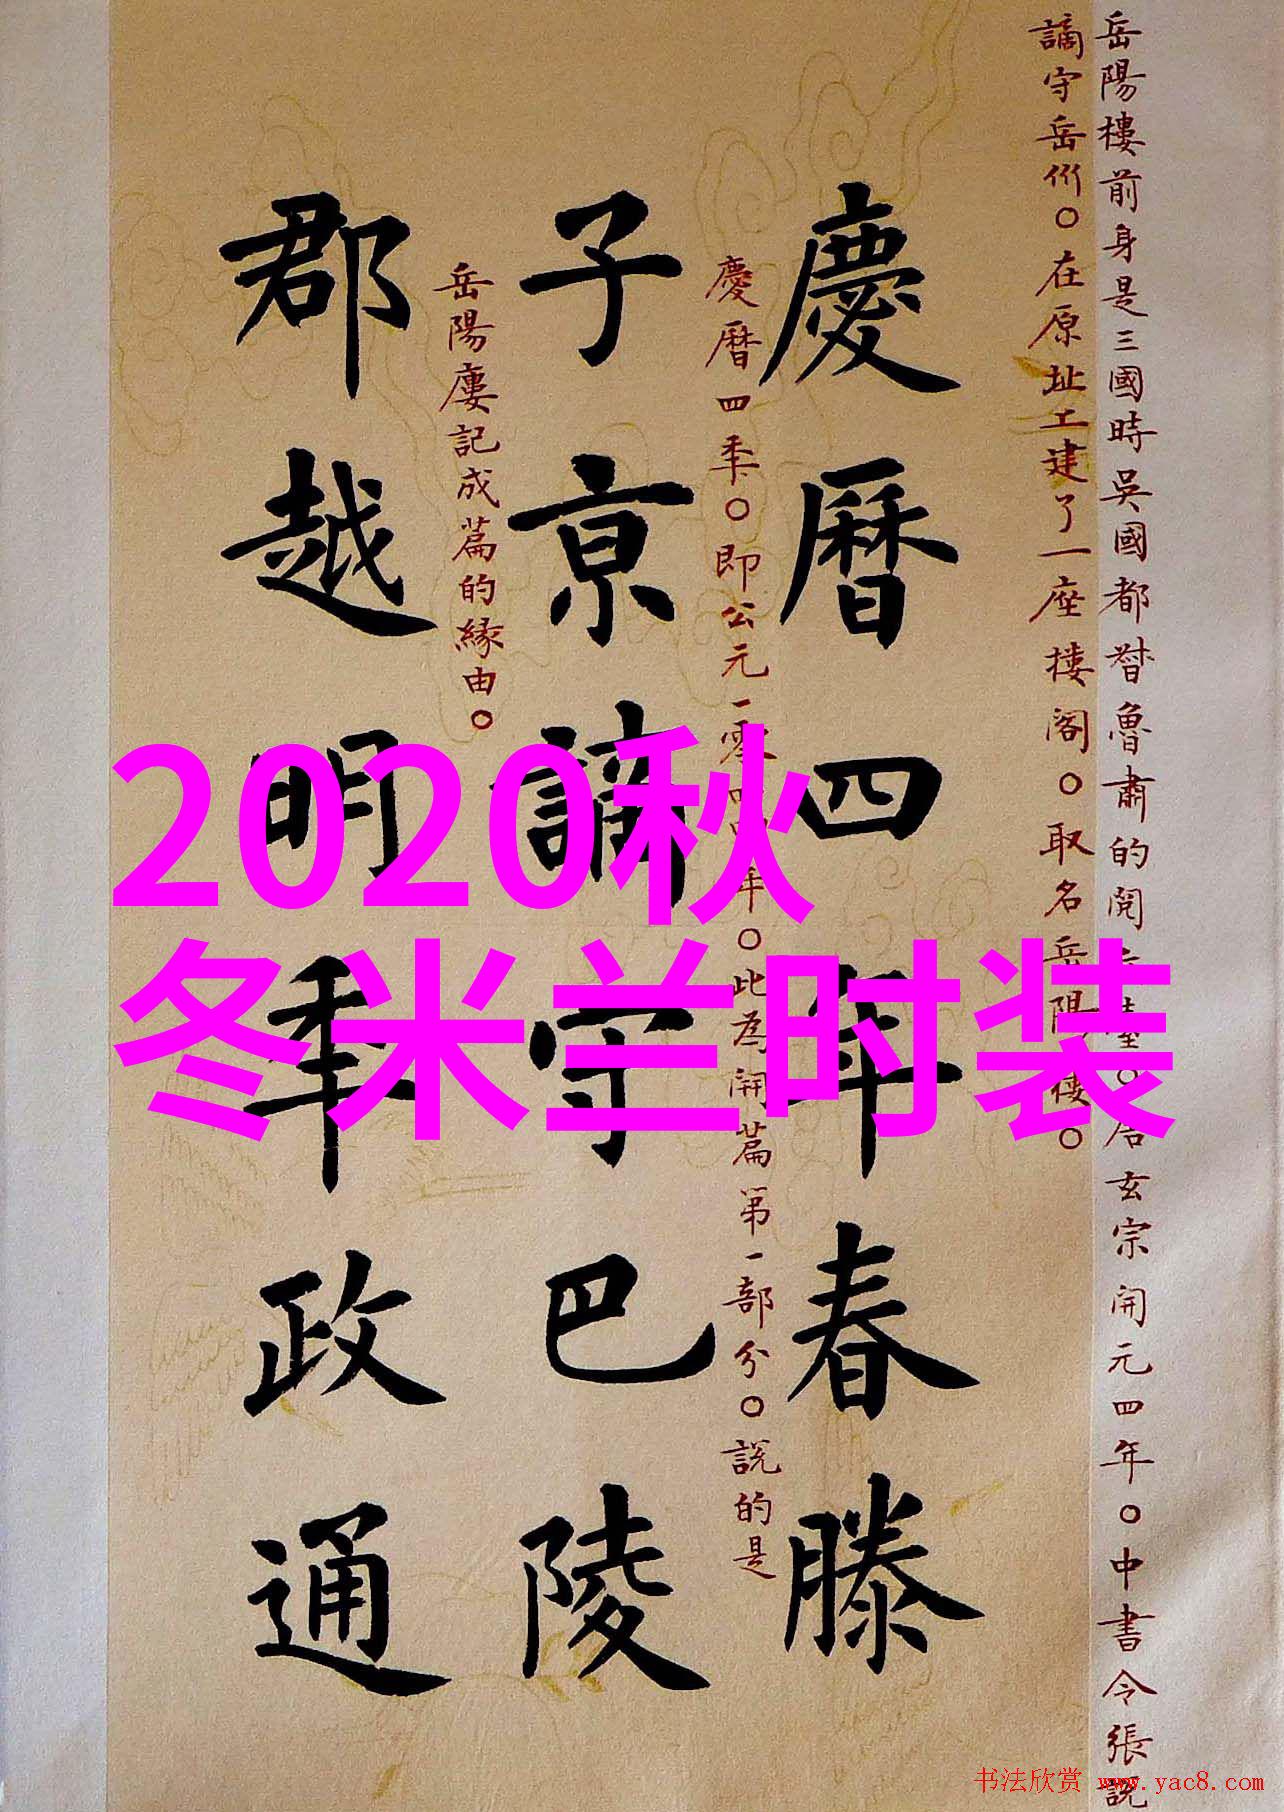 岳陽樓前身是三國時吳國都督魯肅的閱臺○唐玄宗開元四年○中書令張說
謫守岳州○在原址工建了一座樓閣○取名岳陽樓○
慶曆四年春滕
慶曆四年○即公元一零四四年○此為開篇第一部分○説的是
子京謫守巴陵
岳陽廔記成篇的緣由○
郡越明年政通
2020秋
冬米兰时装
书法欣赏 www.yac8.com